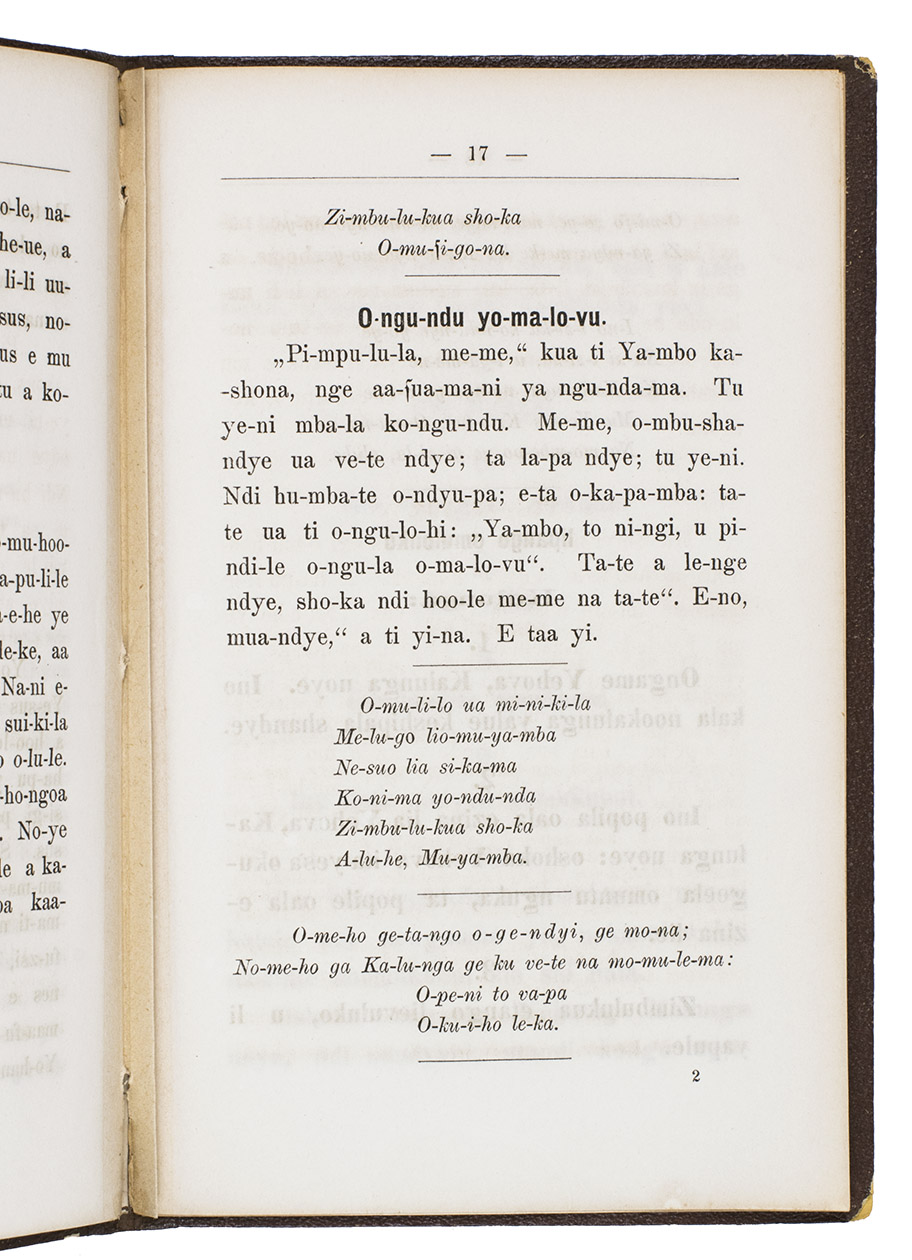 o-le, na-
he-ue, a
li-li uu-
sus, no-
us e mu
tu a ko-
-mu-hoo-
a-pu-li-le
-e-he ye
le-ke, aa
Na-ni e-
sui-ki-la
o-lu-le.
-ho-ngoa
No-ye
le a ka-
kaa-
— 17 —
Zi-mbu-lu-kua sho-ka
O-mu-ſi-go-na.
O-ngu-ndu yo-ma-lo-vu.
„Pi-mpu-lu-la, me-me,“ kua ti Ya-mbo ka-
-shona, nge aa-ſua-ma-ni ya ngu-nda-ma. Tu
ye-ni mba-la ko-ngu-ndu. Me-me, o-mbu-sha-
ndye ua ve-te ndye; ta la-pa ndye; tu ye-ni.
Ndi hu-mba-te o-ndyu-pa; e-ta o-ka-pa-mba: ta-
te ua ti o-ngu-lo-hi: „Ya-mbo, to ni-ngi, u pi-
ndi-le o-ngu-la o-ma-lo-vu“. Ta-te a le-nge
ndye, sho-ka ndi hoo-le me-me na ta-te“. E-no,
mua-ndye,“ a ti yi-na. E taa yi.
O-mu-li-lo ua mi-ni-ki-la
Me-lu-go lio-mu-ya-mba
Ne-suo lia si-ka-ma
Ko-ni-ma yo-ndu-nda
Zi-mbu-lu-kua sho-ka
A-lu-he, Mu-ya-mba.
O-me-ho ge-ta-ngo o-ge-ndyi, ge mo-na;
No-me-ho ga Ka-lu-nga ge ku ve-te na mo-mu-le-ma:
O-pe-ni to va-pa
O-ku-i-ho le-ka.
2